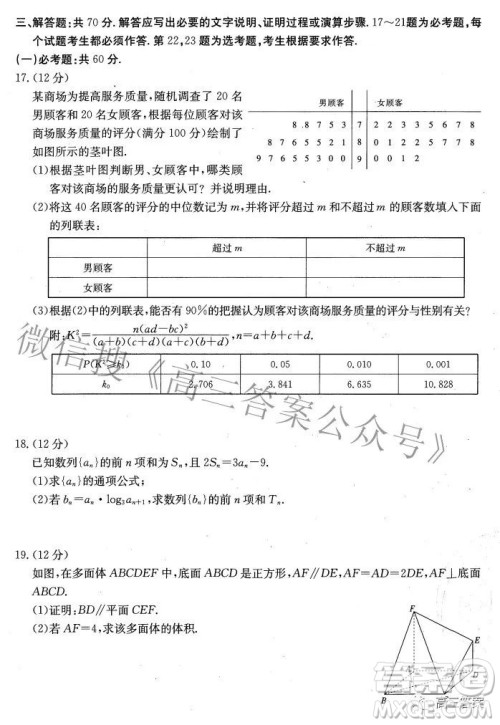 三、解答题:共70分.解答应写出必要的文字说明、证明过程或演算步骤.17～21题为必考题,每
个试题考生都必须作答.第22,23题为选考题,考生根据要求作答.
(一)必考题:共60分.
17.(12分)
某商场为提高服务质量,随机调查了20名
男顾客和20名女顾客,根据每位顾客对该
商场服务质量的评分(满分100分)绘制了
如图所示的茎叶图.
男顾客 女顾客
8 8 8 7 5 3 7 2 2 3 3 5 6 7 8
8 7 6 5 5 2 1 8 0 1 2 2 3 4 6 8
9 7 6 5 5 3 0 9 0 0 1 2
(1)根据茎叶图判断男、女顾客中,哪类顾
客对该商场的服务质量更认可?并说明理由.
(2)将这40名顾客的评分的中位数记为m,并将评分超过m和不超过m的顾客数填入下面
的列联表:
超过m 不超过m
男顾客
女顾客
(3)根据(2)中的列联表,能否有90%的把握认为顾客对该商场服务质量的评分与性别有关?
附:K²=n(ad-bc)²/(a+b)(c+d)(a+c)(b+d),n=a+b+c+d.
P(K²≥k₀) 0.10 0.05 0.010 0.001
k₀ 2.706 3.841 6.635 10.828
18.(12分)
已知数列{aₙ}的前n项和为Sₙ,且2Sₙ=3aₙ-9.
(1)求{aₙ}的通项公式;
(2)若bₙ=aₙ·log₃aₙ₊₁,求数列{bₙ}的前n项和Tₙ.
19.(12分)
如图,在多面体ABCDEF中,底面ABCD是正方形,AF∥DE,AF=AD=2DE,AF⊥底面
ABCD.
(1)证明:BD∥平面CEF.
(2)若AF=4,求该多面体的体积.
F
E
B
微信搜《高三答案公众号》
高三答案